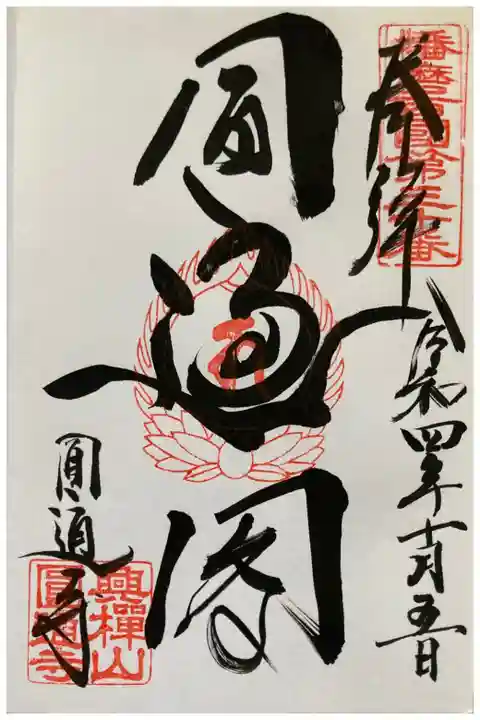 播磨西國第三十番
奉拝
令和四年十月五日
圓通閣
圓通寺
興禅山
圓通寺